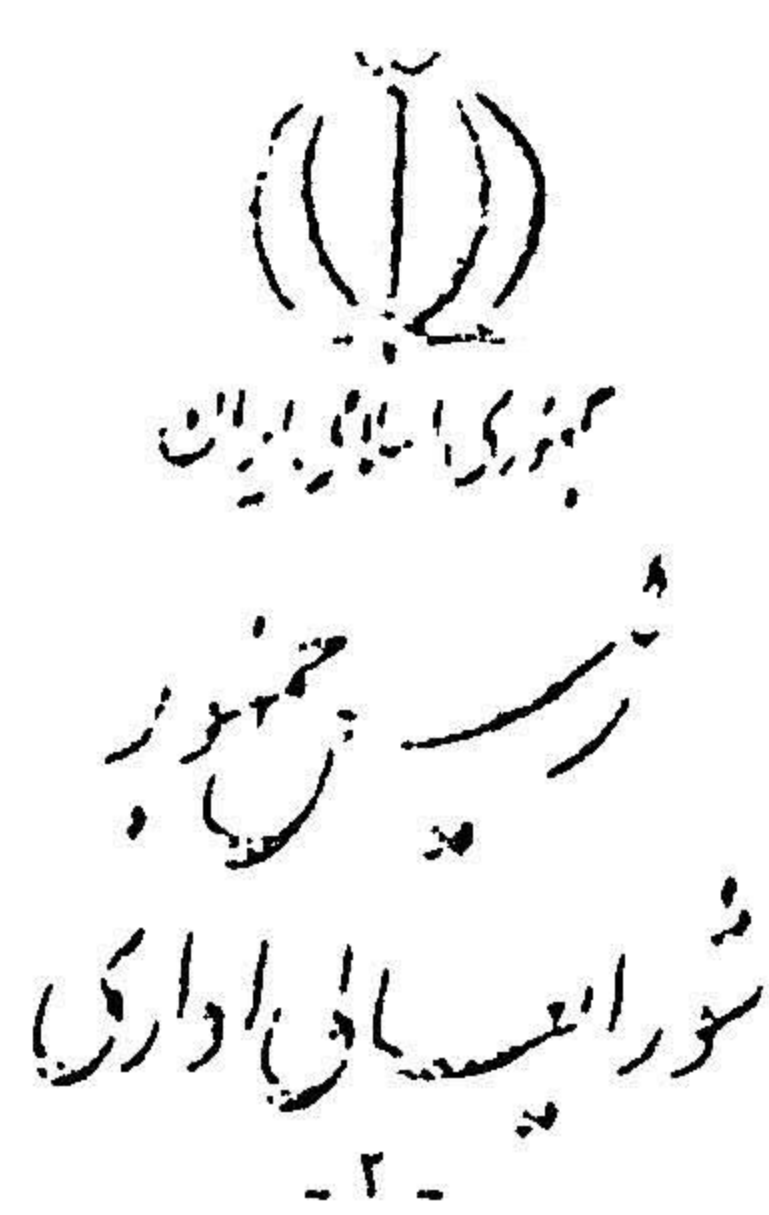 جمهوری اسلامی ایران
رئیس جمهور
شورایعالی اداری
- ۲ -